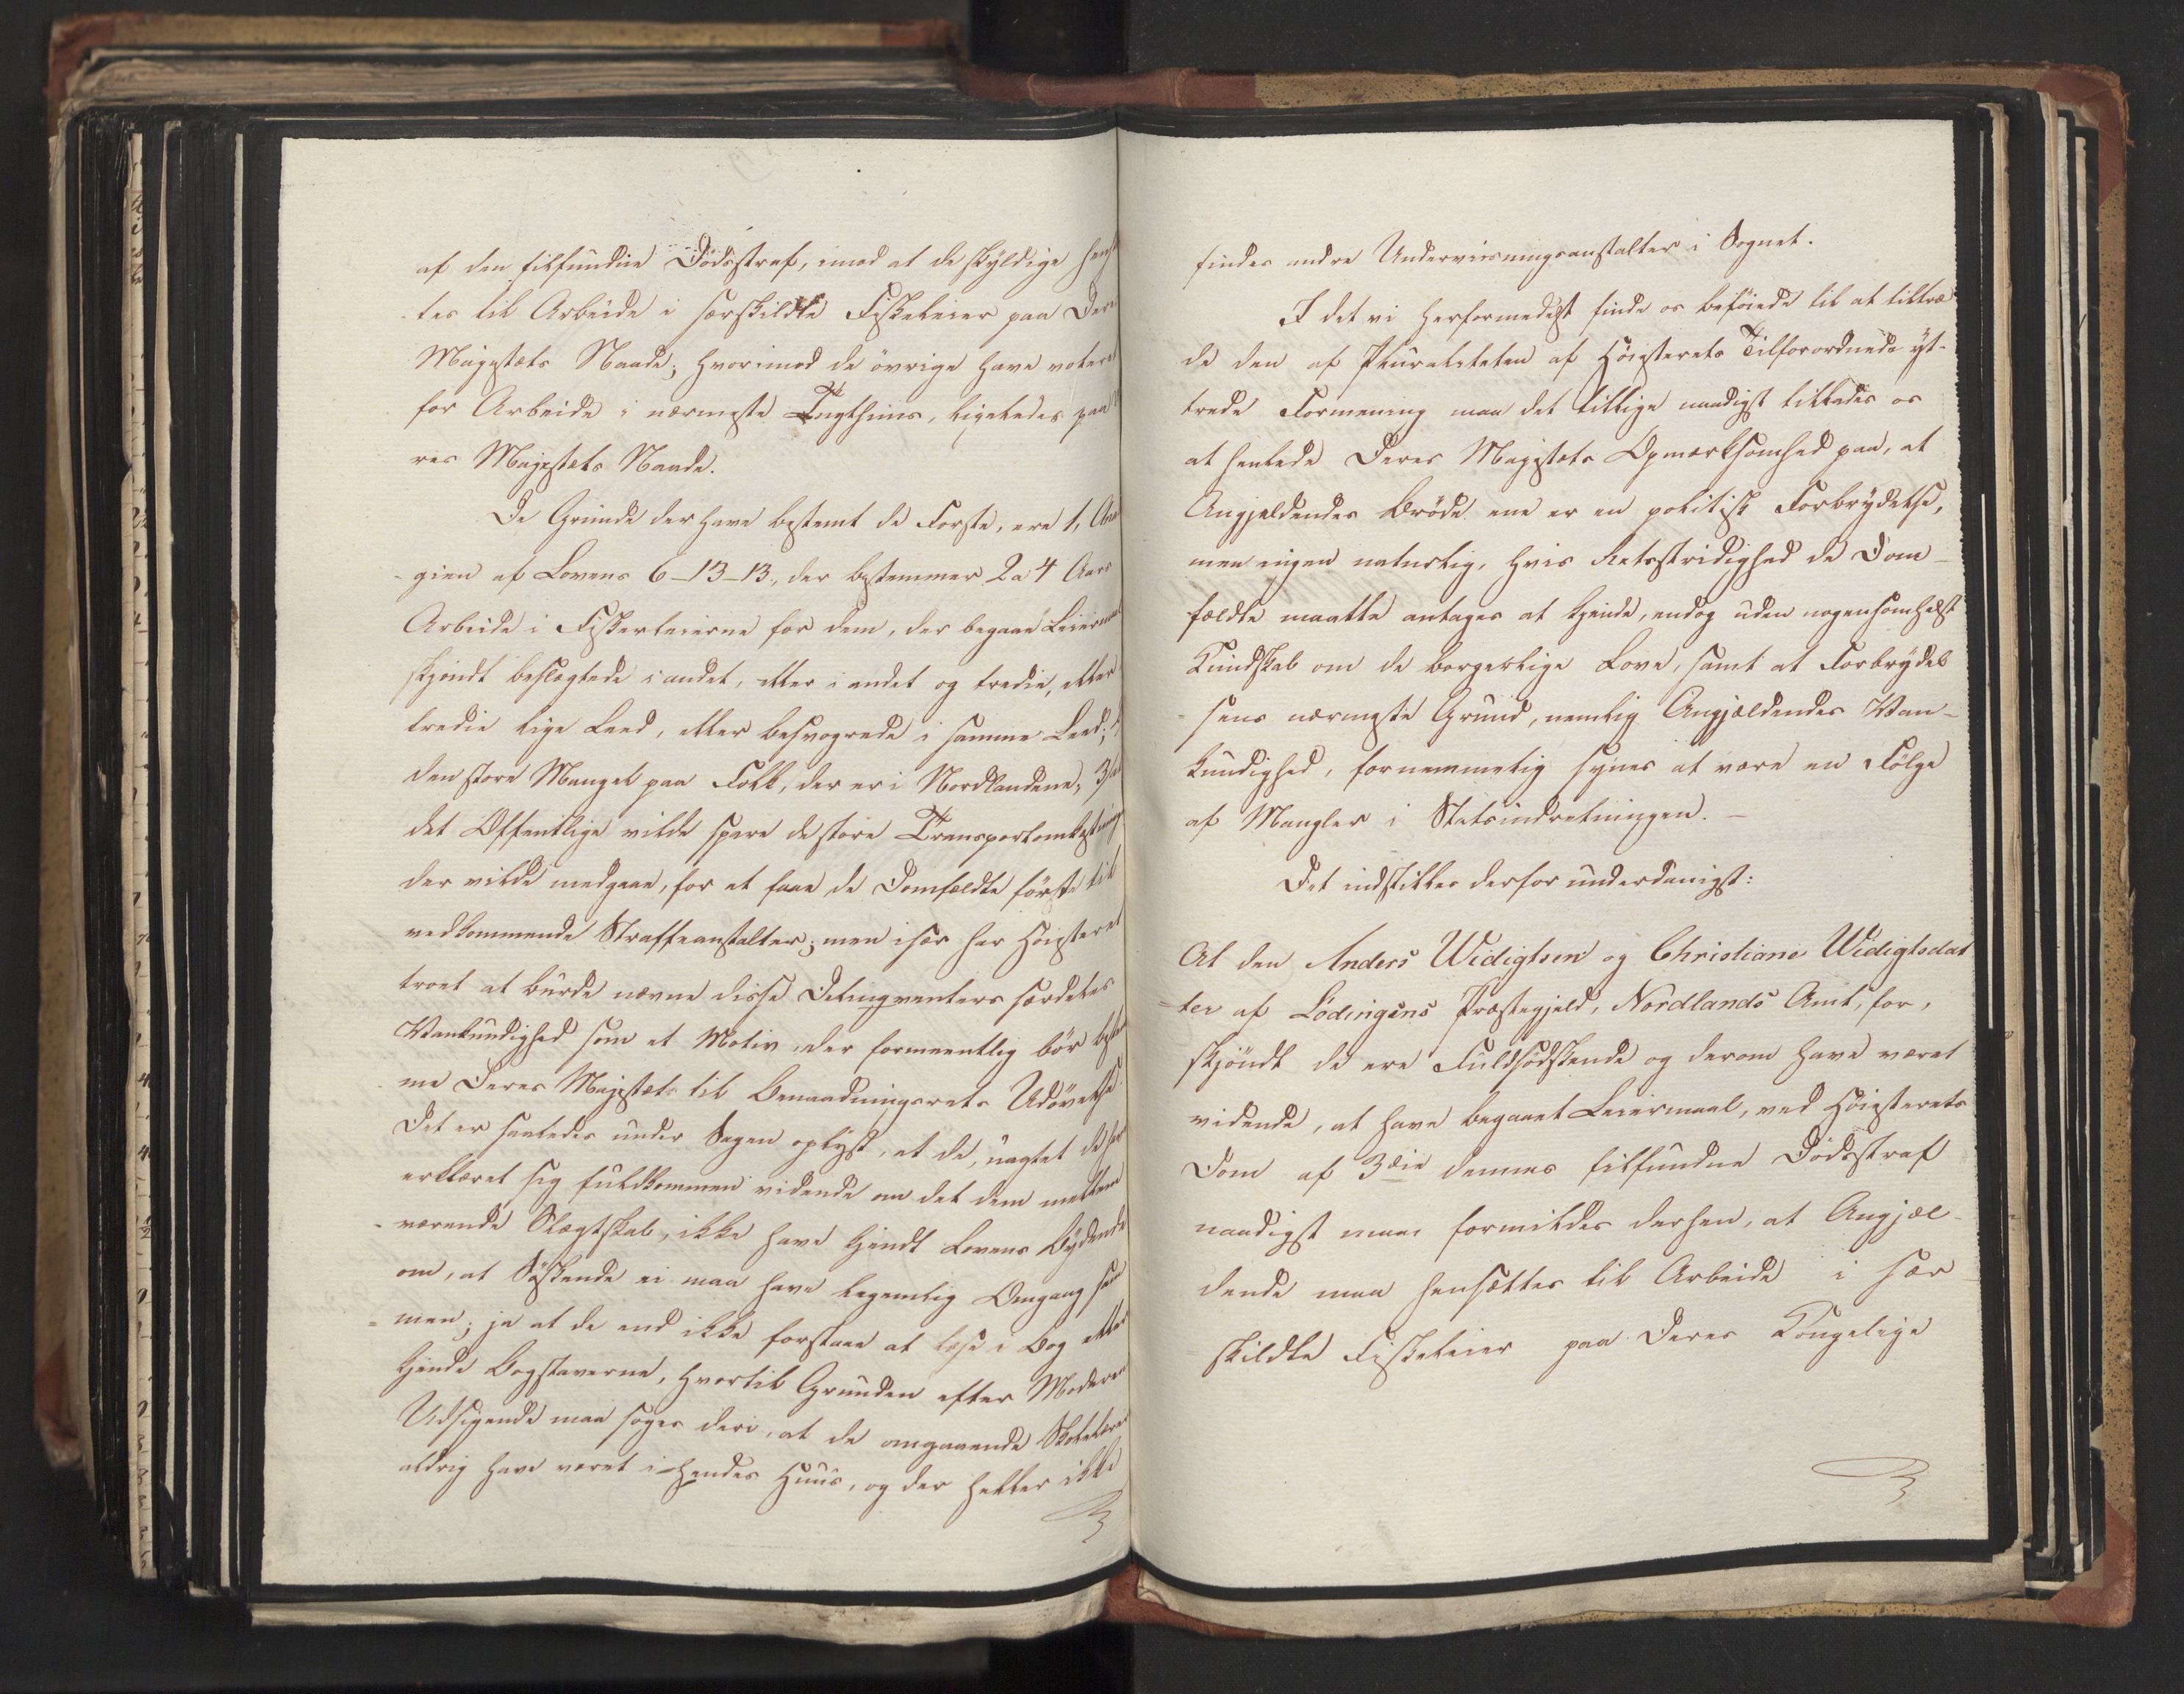 af den tilfundne Dødsstraf, imod at de skyldige hensæt
tes til Arbeide i særskildte Fiskeleier paa Deres
Majestæts Naade; hvorimod de övrige have voteret
for Arbeide i nærmeste Tugthuus, ligeledes paa De
res Majestæts Naade.
De Grunde der have bestemt de Første, ere 1, Ana
gien af Lovens 6-13-13., der bestemmer 2 a 4 Aars
Arbeide i Fiskerleierne for dem, der begaae Leiermaal
skjöndt beslægtede i andet, eller i andet og tredie, eller
tredie lige Leed, eller besvogrede i samme Leed;
den store Mangel paa Folk, der er i Nordlandene, 3, at
det Offentlige vilde spare de store Transportomkostninger
der vilde medgaae, for at faae de Domfældte förte til
vedkommende Straffeanstalter; men især har Höiesteret
troet at burde nævne disse Delinqventers særdeles
Vankundighed som et Motiv, der formeentlig bör bestem
me Deres Majestæt til Benaadningsrets Udövelse.
Det er saaledes under Sagen oplyst, at de, uagtet de har
erklæret sig fuldkommen vidende om det dem mellem
værende Slægtskab, ikke have kjendt Lovens Bydende
om, at Söskende ei maa have legemlig Omgang sam
men; ja at de end ikke forstaae at læse i Bog eller
kjende Bogstaverne, hvortil Grunden efter Moderens
Udsigende maa söges deri, at de omgaaende Skolelærere
aldrig have været i hendes Huus, og der heller ikke
findes andre Underviisningsanstalter i Sognet.
I det vi herformedelst finde os beföiede til at tiltræ
de den af Pluraliteten af Höiesterets Tilforordnede yt-
trede Formening maa det tillige naadigst tillades os
at henlede Deres Majestæts Opmærksomhed paa, at
Angjældendes Bröde ene er en politisk Forbrydelse,
men ingen naturlig, hvis Retsstridighed de Dom-
fældte maatte antages at kjende, endog uden nogensomhelst
Kundskab om de borgerlige Love, samt at Forbrydel
sens nærmeste Grund, nemlig Angjældendes Van-
kundighed, fornemmelig synes at være en Fölge
af Mangler i Statsindretningen. -
Det indstilles derfor underdanigst:
At den Anders Widigtsen og Christiane Widigtsdat
ter af Lödingens Præstegjeld, Nordlands Amt, for,
skjöndt de ere Fuldsödskende og derom have været
vidende, at have begaaet Leiermaal, ved Höiesterets
Dom af 3die dennes tilfundne Dödsstraf
naadigst maae formildes derhen, at Angjæl-
dende maa hensættes til Arbeide i sær
skildte Fiskeleier paa Deres Kongelige